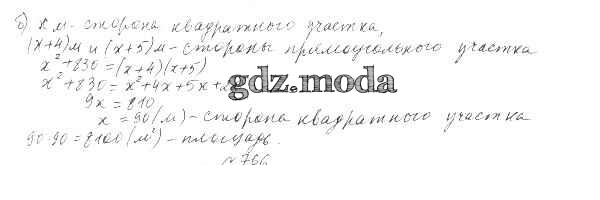 б) x м - сторона квадратного участка,
(x+4) м и (x+5) м - стороны прямоугольного участка
x²+830=(x+4)(x+5)
x²+830=x²+4x+5x+2
gdz.moda
9x=810
x=90 (м) - сторона квадратного участка
90·90=8100 (м²) - площадь.
~766